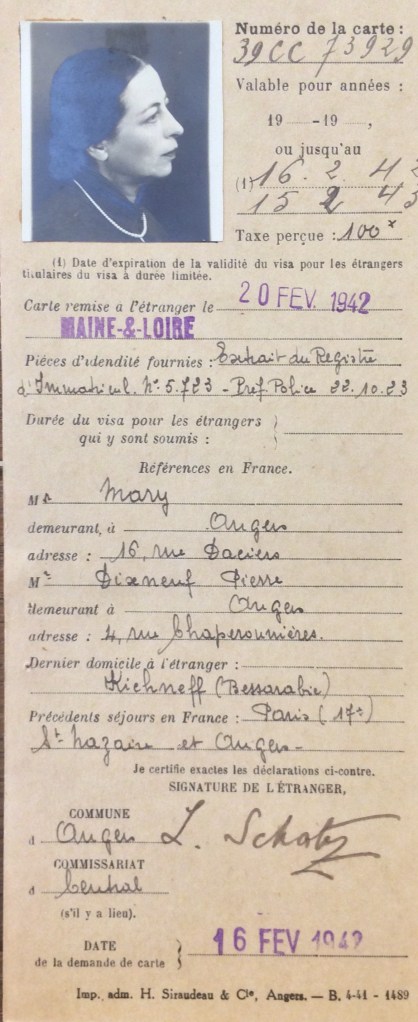 Numéro de la carte :
39CC 73929
Valable pour années :
19 —19 — ,
ou jusqu'au
(1) 16. 2. 42
15 2 43
Taxe perçue : 100
(1) Date d'expiration de la validité du visa pour les étrangers
titulaires du visa à durée limitée.
Carte remise a l'étranger le 20 FEV. 1942
MAINE-&-LOIRE
Pièces d'identité fournies : Extrait du Registre
d'Immatricul. N° 5.723 - Pref. Police 22.10.23
Durée du visa pour les étrangers
qui y sont soumis :
Références en France.
Mr Mary
demeurant à Angers
adresse : 16, rue Daciers
Mr Dixneuf Pierre
demeurant à Angers
adresse : 4, rue Chaperonnières.
Dernier domicile à l'étranger :
Kichneff (Bessarabie)
Précédents séjours en France : Paris (17e)
St Nazaire et Angers -
Je certifie exactes les déclarations ci-contre.
SIGNATURE DE L'ÉTRANGER,
COMMUNE
d Angers
L. Schatz
COMMISSARIAT
d Central
(s'il y a lieu).
DATE
de la demande de carte
16 FEV 1942
Imp. adm. H. Siraudeau & Cie, Angers. — B. 4-41 - 1489